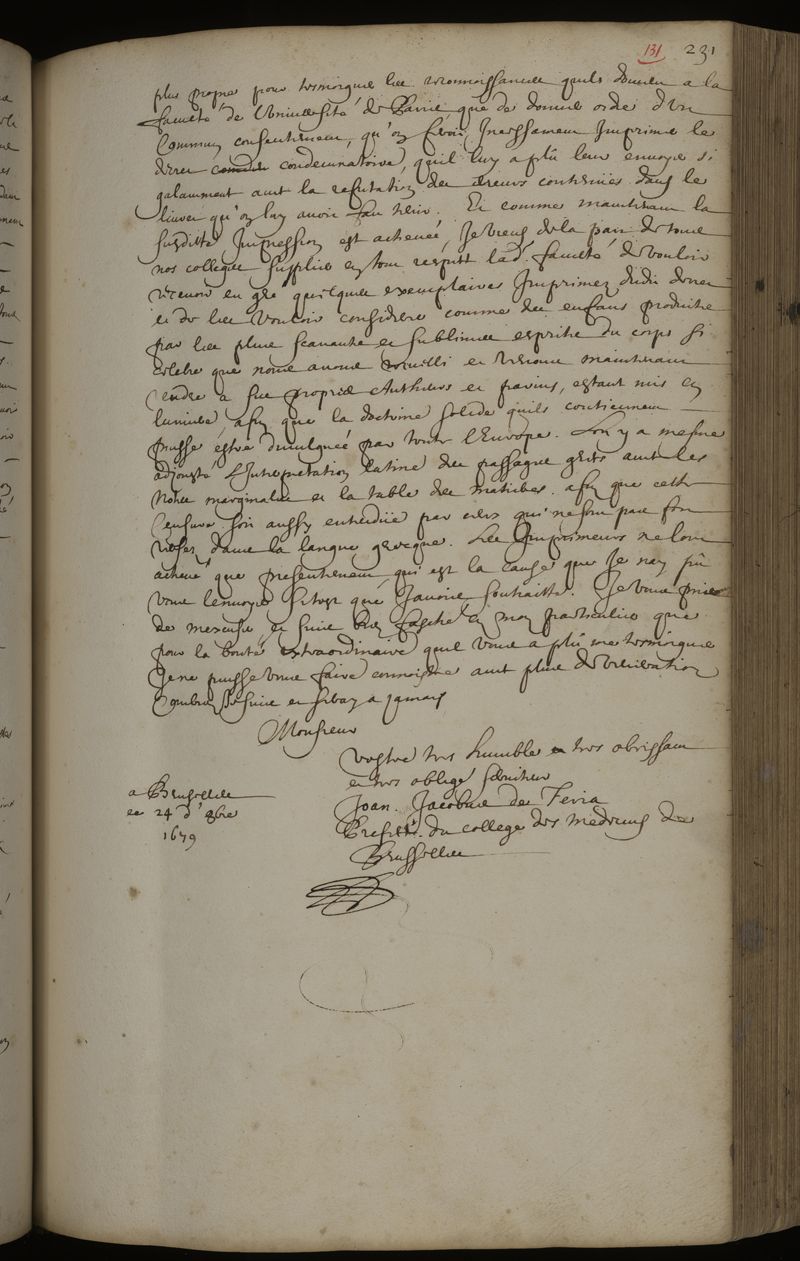 131 231
plus propre pour tesmoigner les reconnoissances quils doivent a la
faculté de l'Université de Paris, que de donner ordre d'un
Commun consentement, qu'on feroit Incessament Imprimer le
decret condemnatoire, quil luy a plû leur envoyer si
galamment avec la refutation des erreurs contenües dans le
livre qu'on luy avoit fait tenir. Et comme maintenant la
susditte Impression est achevée, Je viens de la part de tous
nos collegues supplier en tout respect lad. faculté de vouloir
recevoir en gré quelques exemplaires Imprimez dudit decret
et de les vouloir considerer comme des enfans produits
par les plus scavants et sublimes esprits du corps si
celebre que nous avons recueilli et venons maintenant
rendre a ses propres Autheurs et parens, estant mis en
lumiere, afin que la doctrine solide quils contiennent
puisse estre divulguée par toute l'Europe. Lon y a mesme
adjousté l'Interpretation latine des passages grecs avec les
Notes marginales et la table des matieres. afin que cette
censure soit aussy entendüe par ceux qui ne sont pas fort
versez dans la langue grecque. Les Imprimeurs ne lont
achevé que presentement, qui est la cause que Je nay pû
vous lenvoyer si tost que Javois souhaitté. Je vous prie
de mexcuser, et suis bien fasché en mon particulier que
pour la bonté extraordinaire quil vous a plû me tesmoigner
Je ne puisse vous faire connoistre avec plus de veneration
Combien Je suis et seray a jamais
Monsieur
vostre tres humble et tres obeissant
et tres obligé serviteur
a Bruxelles
ce 24 d'8bre
1679
Joan. Jacobus de Feria
Prefect. du college des medecins de
Brusselles